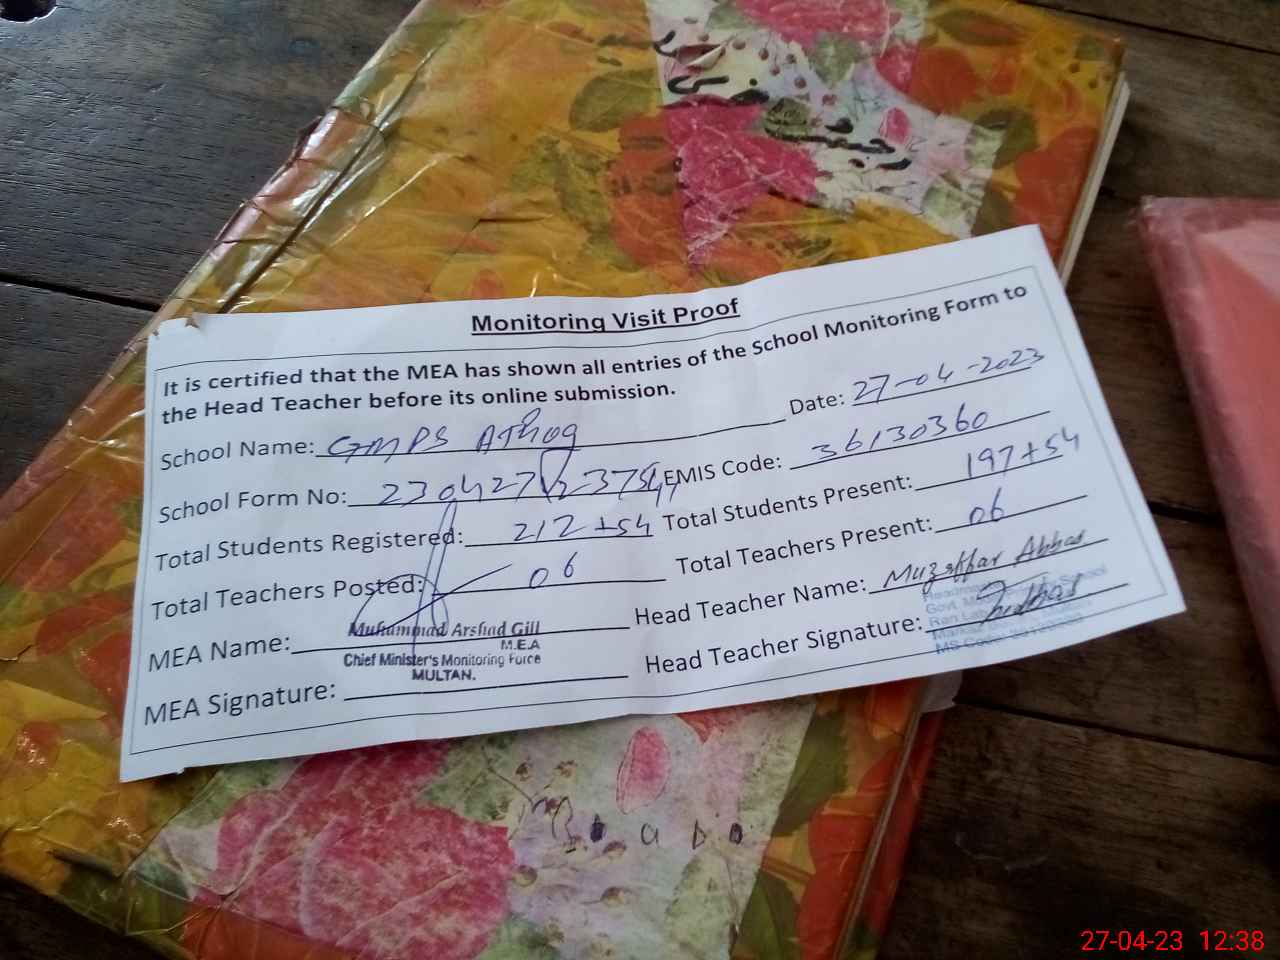 Monitoring Visit Proof
It is certified that the MEA has shown all entries of the School Monitoring Form to
the Head Teacher before its online submission.
School Name: GMPS Date: 27-04-2023
School Form No: EMIS Code: 36130360
Total Students Registered: 212+54 Total Students Present: 197+54
Total Teachers Posted: 06 Total Teachers Present: 06
MEA Name: Muhammad Arshad Gill Head Teacher Name: Muzaffar Abbas
M.E.A
Chief Minister's Monitoring Force
MULTAN.
MEA Signature: Head Teacher Signature:
27-04-23 12:38